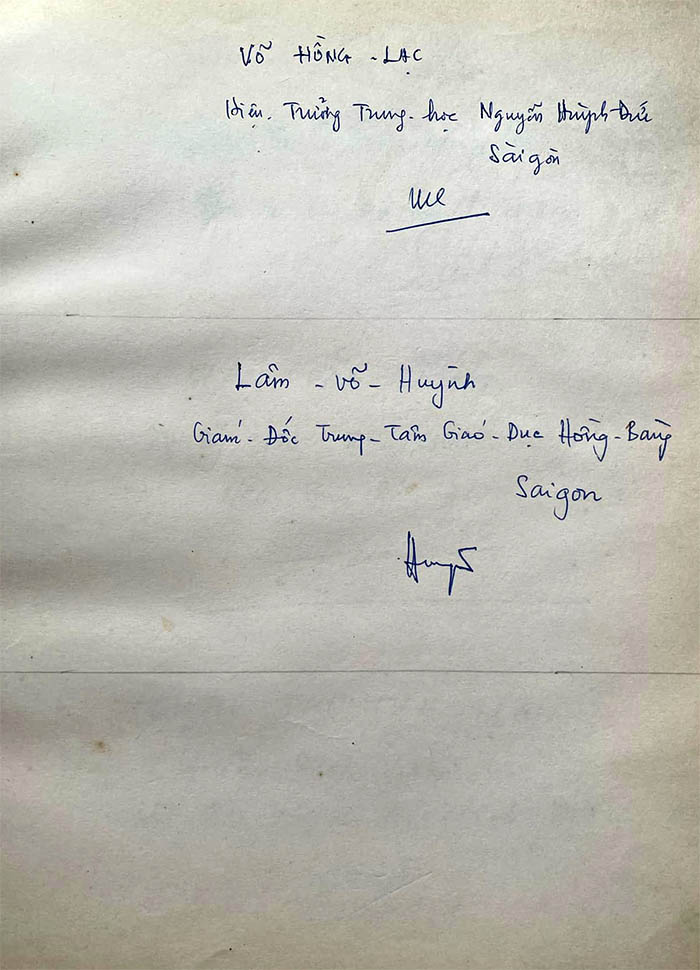 Võ HỒNG - LẠC
Hiệu. Trưởng Trung - học Nguyễn Huỳnh-Đức
Sàigòn
Lâm - Võ - Huỳnh
Giám - Đốc Trung - Tâm Giáo - Dục Hồng - Bàng
Saigon